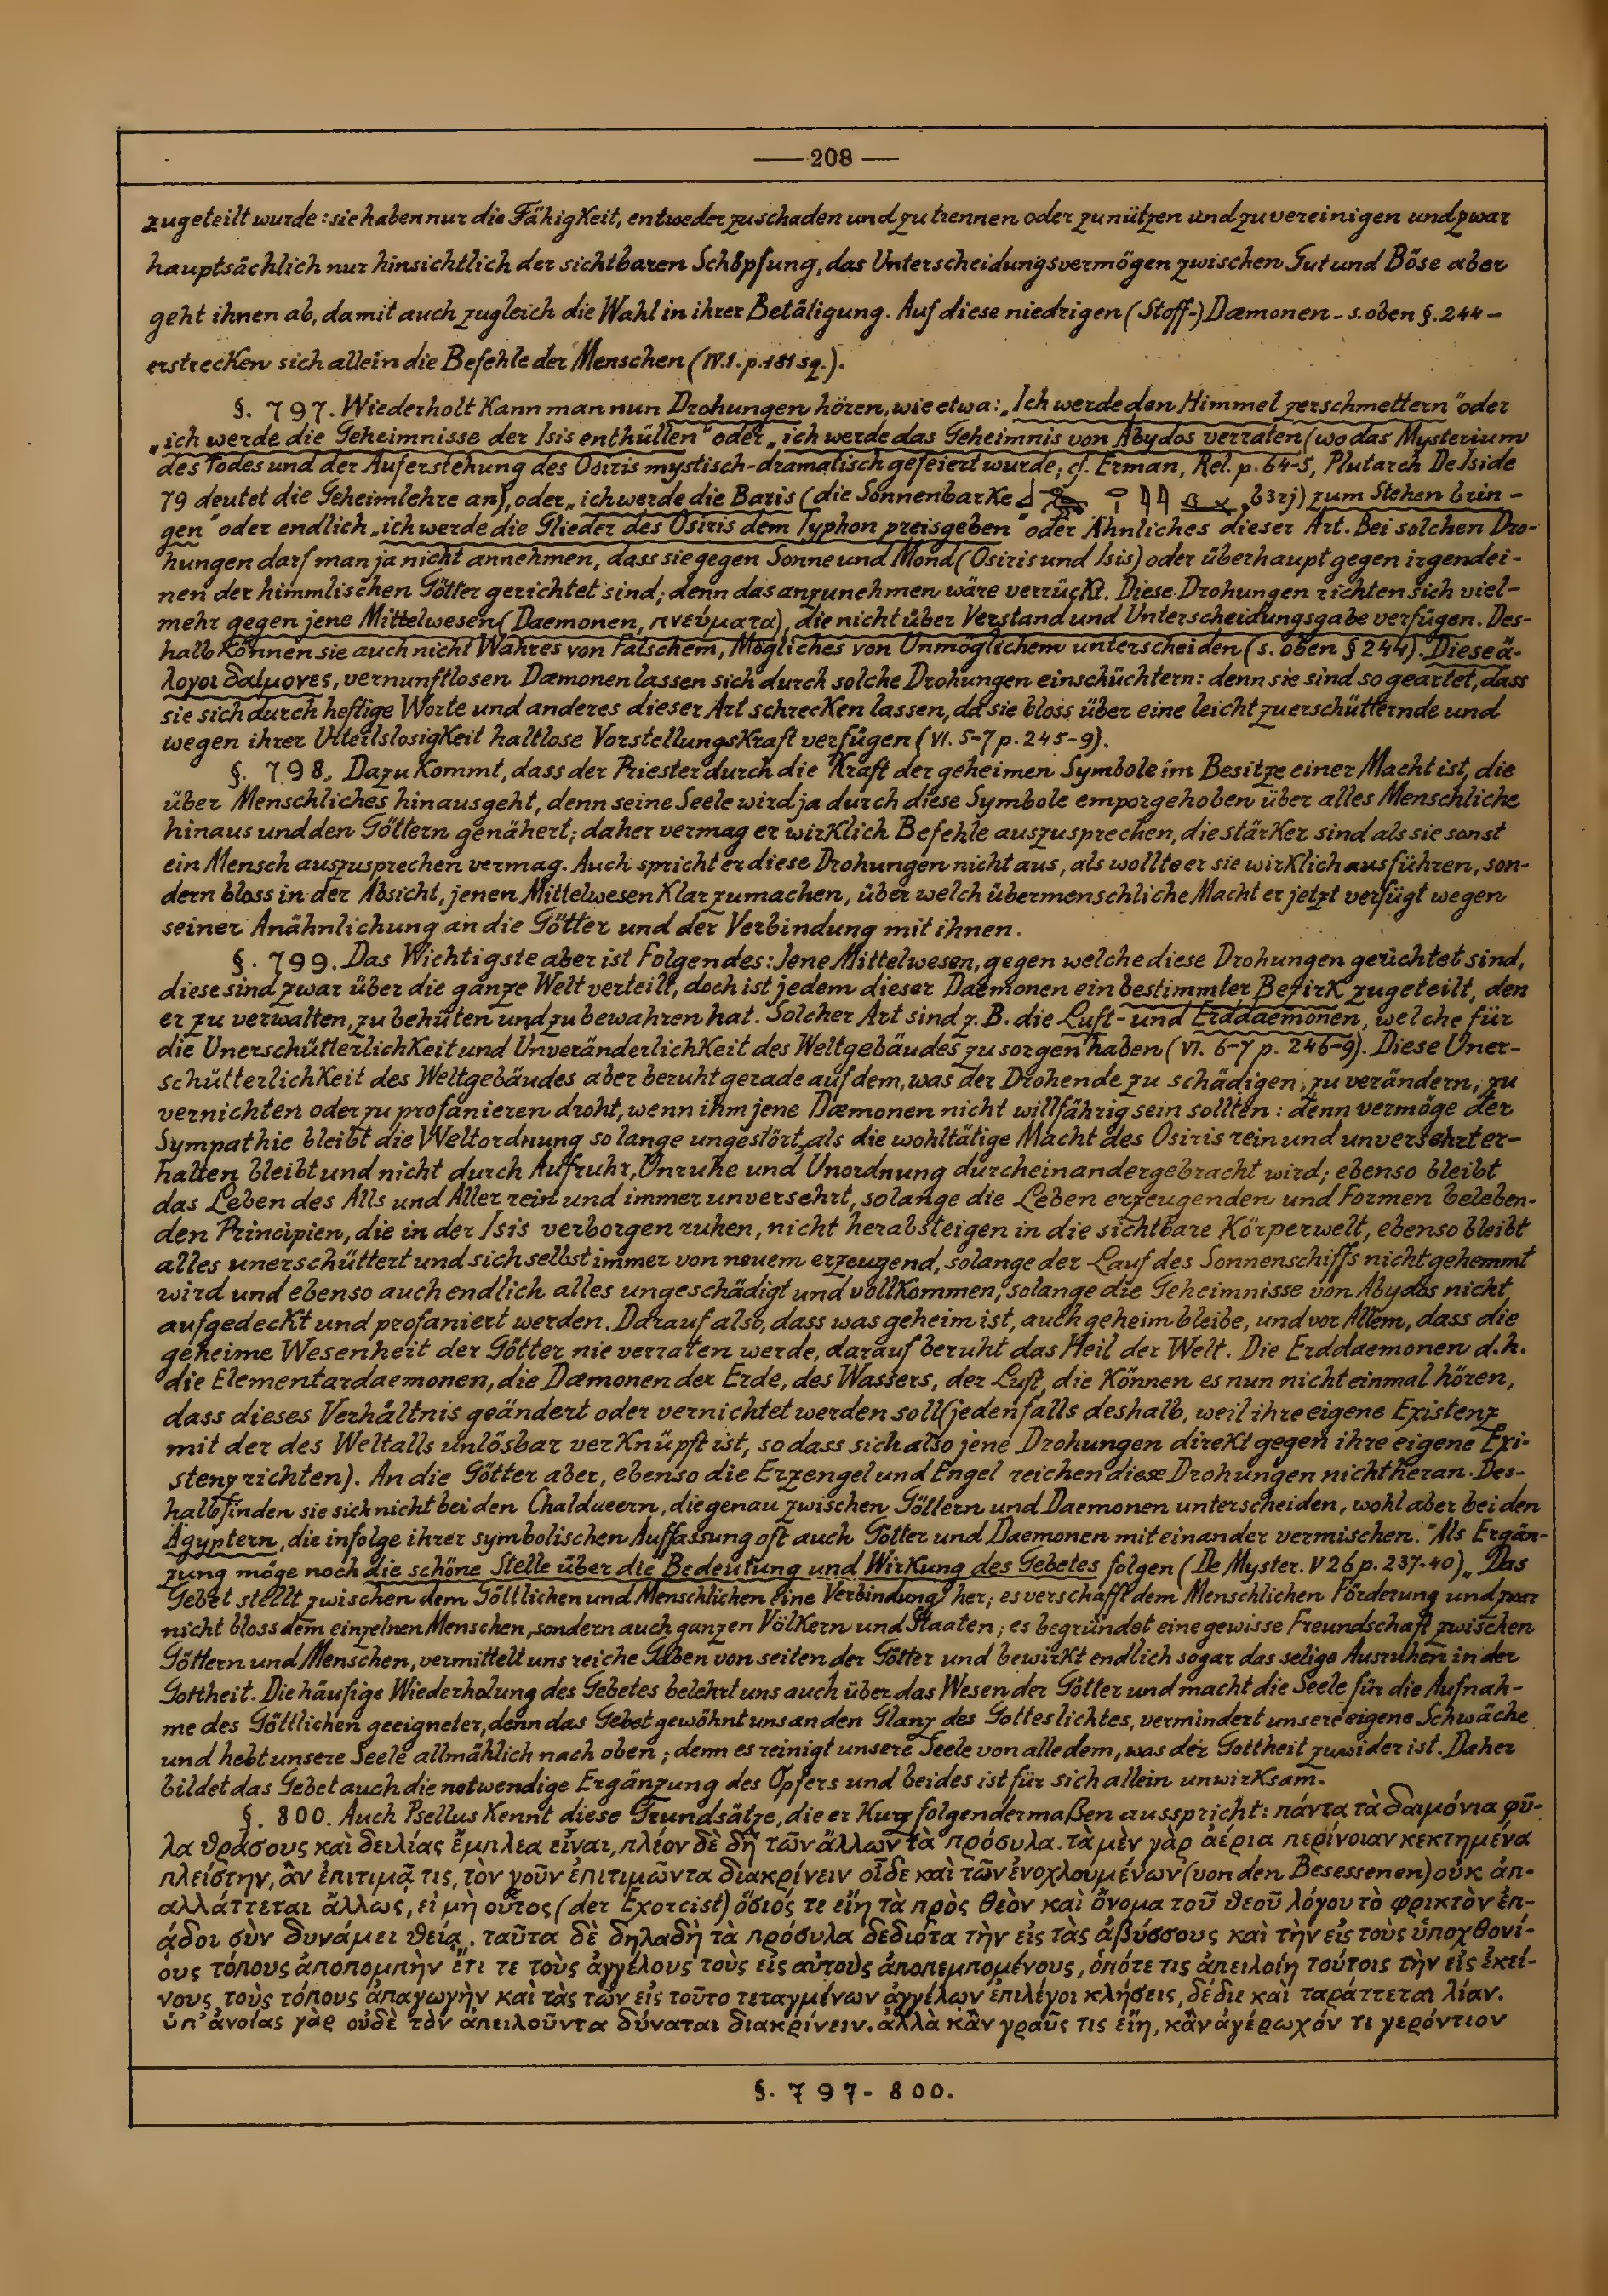 — 208 —
zugeteilt wurde: sie haben nur die Fähigkeit, entweder zu schaden und zu trennen oder zu nützen und zu vereinigen und zwar
hauptsächlich nur hinsichtlich der sichtbaren Schöpfung, das Unterscheidungsvermögen zwischen Gut und Böse aber
geht ihnen ab, damit auch zugleich die Wahl in ihrer Betätigung. Auf diese niedrigen (Stoff-) Dæmonen - s. oben §. 244 -
erstrecken sich allein die Befehle der Menschen (IV. 1. p. 181 sq.).
§. 797. Wiederholt kann man nun Drohungen hören, wie etwa: „Ich werde den Himmel zerschmettern" oder
„ich werde die Geheimnisse der Isis enthüllen" oder „ich werde das Geheimnis von Abydos verraten (wo das Mysterium
des Todes und der Auferstehung des Osiris mystisch-dramatisch gefeiert wurde, cf. Erman, Rel. p. 64-5, Plutarch De Iside
79 deutet die Geheimlehre an), oder „ich werde die Baris (die Sonnenbarke , b3rj) zum Stehen brin-
gen" oder endlich „ich werde die Glieder des Osiris dem Typhon preisgeben" oder Ähnliches dieser Art. Bei solchen Dro-
hungen darf man ja nicht annehmen, dass sie gegen Sonne und Mond (Osiris und Isis) oder überhaupt gegen irgendei-
nen der himmlischen Götter gerichtet sind; denn das anzunehmen wäre verrückt. Diese Drohungen richten sich viel-
mehr gegen jene Mittelwesen (Daemonen, πνεύματα), die nicht über Verstand und Unterscheidungsgabe verfügen. Des-
halb können sie auch nicht Wahres von Falschem, Mögliches von Unmöglichem unterscheiden (s. oben § 244). Diese ἄ-
λογοι δαίμονες, vernunftlosen Dæmonen lassen sich durch solche Drohungen einschüchtern: denn sie sind so geartet, dass
sie sich durch heftige Worte und anderes dieser Art schrecken lassen, da sie bloss über eine leicht zu erschütternde und
wegen ihrer Urteilslosigkeit haltlose Vorstellungskraft verfügen (VI. 5-7 p. 245-9).
§. 798. Dazu kommt, dass der Priester durch die Kraft der geheimen Symbole im Besitze einer Macht ist, die
über Menschliches hinausgeht, denn seine Seele wird ja durch diese Symbole emporgehoben über alles Menschliche
hinaus und den Göttern genähert; daher vermag er wirklich Befehle auszusprechen, die stärker sind als sie sonst
ein Mensch auszusprechen vermag. Auch spricht er diese Drohungen nicht aus, als wollte er sie wirklich ausführen, son-
dern bloss in der Absicht, jenen Mittelwesen klar zu machen, über welch übermenschliche Macht er jetzt verfügt wegen
seiner Anähnlichung an die Götter und der Verbindung mit ihnen.
§. 799. Das Wichtigste aber ist Folgendes: Jene Mittelwesen, gegen welche diese Drohungen gerichtet sind,
diese sind zwar über die ganze Welt verteilt, doch ist jedem dieser Daemonen ein bestimmter Bezirk zugeteilt, den
er zu verwalten, zu behüten und zu bewahren hat. Solcher Art sind z. B. die Luft- und Erddaemonen, welche für
die Unerschütterlichkeit und Unveränderlichkeit des Weltgebäudes zu sorgen haben (VI. 6-7 p. 246-9). Diese Uner-
schütterlichkeit des Weltgebäudes aber beruht gerade auf dem, was der Drohende zu schädigen, zu verändern, zu
vernichten oder zu profanieren droht, wenn ihm jene Dæmonen nicht willfährig sein sollten: denn vermöge der
Sympathie bleibt die Weltordnung so lange ungestört, als die wohltätige Macht des Osiris rein und unversehrt er-
halten bleibt und nicht durch Aufruhr, Unruhe und Unordnung durcheinandergebracht wird; ebenso bleibt
das Leben des Alls und Aller rein und immer unversehrt, solange die Leben erzeugenden und Formen beleben-
den Principien, die in der Isis verborgen ruhen, nicht herabsteigen in die sichtbare Körperwelt, ebenso bleibt
alles unerschüttert und sich selbst immer von neuem erzeugend, solange der Lauf des Sonnenschiffs nicht gehemmt
wird und ebenso auch endlich alles ungeschädigt und vollkommen, solange die Geheimnisse von Abydos nicht
aufgedeckt und profaniert werden. Darauf also, dass was geheim ist, auch geheim bleibe, und vor Allem, dass die
geheime Wesenheit der Götter nie verraten werde, darauf beruht das Heil der Welt. Die Erddaemonen d. h.
die Elementardaemonen, die Dæmonen der Erde, des Wassers, der Luft, die können es nun nicht einmal hören,
dass dieses Verhältnis geändert oder vernichtet werden soll (jedenfalls deshalb, weil ihre eigene Existenz
mit der des Weltalls unlösbar verknüpft ist, so dass sich also jene Drohungen direkt gegen ihre eigene Exi-
stenz richten). An die Götter aber, ebenso die Erzengel und Engel reichen diese Drohungen nicht heran. Des-
halb finden sie sich nicht bei den Chaldaeern, die genau zwischen Göttern und Daemonen unterscheiden, wohl aber bei den
Ägyptern, die infolge ihrer symbolischen Auffassung oft auch Götter und Daemonen mit einander vermischen." Als Ergän-
zung möge noch die schöne Stelle über die Bedeutung und Wirkung des Gebetes folgen (De Myster. V 26 p. 237-40) „Das
Gebet stellt zwischen dem Göttlichen und Menschlichen eine Verbindung her; es verschafft dem Menschlichen Förderung und zwar
nicht bloss dem einzelnen Menschen, sondern auch ganzen Völkern und Staaten; es begründet eine gewisse Freundschaft zwischen
Göttern und Menschen, vermittelt uns reiche Gaben von seiten der Götter und bewirkt endlich sogar das selige Ausruhen in der
Gottheit. Die häufige Wiederholung des Gebetes belehrt uns auch über das Wesen der Götter und macht die Seele für die Aufnah-
me des Göttlichen geeigneter, denn das Gebet gewöhnt uns an den Glanz des Gotteslichtes, vermindert unsere eigene Schwäche
und hebt unsere Seele allmählich nach oben; denn es reinigt unsere Seele von alledem, was der Gottheit zuwider ist. Daher
bildet das Gebet auch die notwendige Ergänzung des Opfers und beides ist für sich allein unwirksam.
§. 800. Auch Psellus kennt diese Grundsätze, die er kurz folgendermaßen ausspricht: πάντα τὰ δαιμόνια φῦ-
λα θράσους καὶ δειλίας ἔμπλεα εἶναι, πλέον δὲ δὴ τῶν ἄλλων τὰ πρόσυλα. τὰ μὲν γὰρ ἀέρια περίνοιαν κεκτημένα
πλείστην, ἂν ἐπιτιμᾷ τις, τὸν γοῦν ἐπιτιμῶντα διακρίνειν οἶδε καὶ τῶν ἐνοχλουμένων (von den Besessenen) οὐκ ἀπ-
αλλάττεται ἄλλως, εἰ μὴ οὗτος (der Exorcist) ὅσιός τε εἴη τὰ πρὸς θεὸν καὶ ὄνομα τοῦ θεοῦ λόγου τὸ φρικτὸν ἐπ-
άδοι σὺν δυνάμει θείᾳ. ταῦτα δὲ δηλαδὴ τὰ πρόσυλα δεδιότα τὴν εἰς τὰς ἀβύσσους καὶ τὴν εἰς τοὺς ὑποχθονί-
ους τόπους ἀποπομπὴν ἔτι τε τοὺς ἀγγέλους τοὺς εἰς αὐτοὺς ἀποπεμπομένους, ὁπότε τις ἀπειλοίη τούτοις τὴν εἰς ἐκεί-
νους τοὺς τόπους ἀπαγωγὴν καὶ τὰς τῶν εἰς τοῦτο τεταγμένων ἀγγέλων ἐπιλέγοι κλήσεις, δέδιε καὶ ταράττεται λίαν.
ὑπ' ἀνοίας γὰρ οὐδὲ τὸν ἀπειλοῦντα δύναται διακρίνειν. ἀλλὰ κἂν γραῦς τις εἴη, κἂν ἀγέρωχόν τι γερόντιον
§. 797- 800.